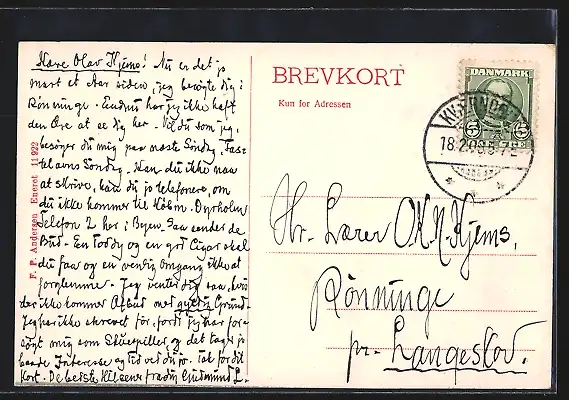 Kære Olav Kjems! Nu er det jo
snart et Aar siden, jeg besøgte dig i
Rønninge. Endnu har jeg ikke haft
den Ære at se dig her. Vil du som jeg,
besøger du mig paa næste Søndag. Fas-
telavns Søndag. Kan du ikke naa
at skrive, kan du jo telefonere, om
du ikke kommer til Kbhvn. Dyrholm
Telefon 2 her i Byen. Saa sendes de
Bud. En Toddy og en god Cigar skal
du faa og en venlig Omgang ikke at
forglemme. Jeg venter dig saa, hvis
der ikke kommer Afbud med gyldig Grund.
Jeg har ikke skrevet før, fordi jeg har for-
søgt mig som Skuespiller, og det tager jo
baade Interesse og Tid ved du jo. Tak for dit
Kort. De bedste Hilsener fra din Gudmund L.
F. P. Andersen Eneret 11922
BREVKORT
Kun for Adressen
DANMARK
5 5
ØRE
18.2.09
Hr. Lærer O. K. N. Kjems.
Rönninge
pr. Langeskov.